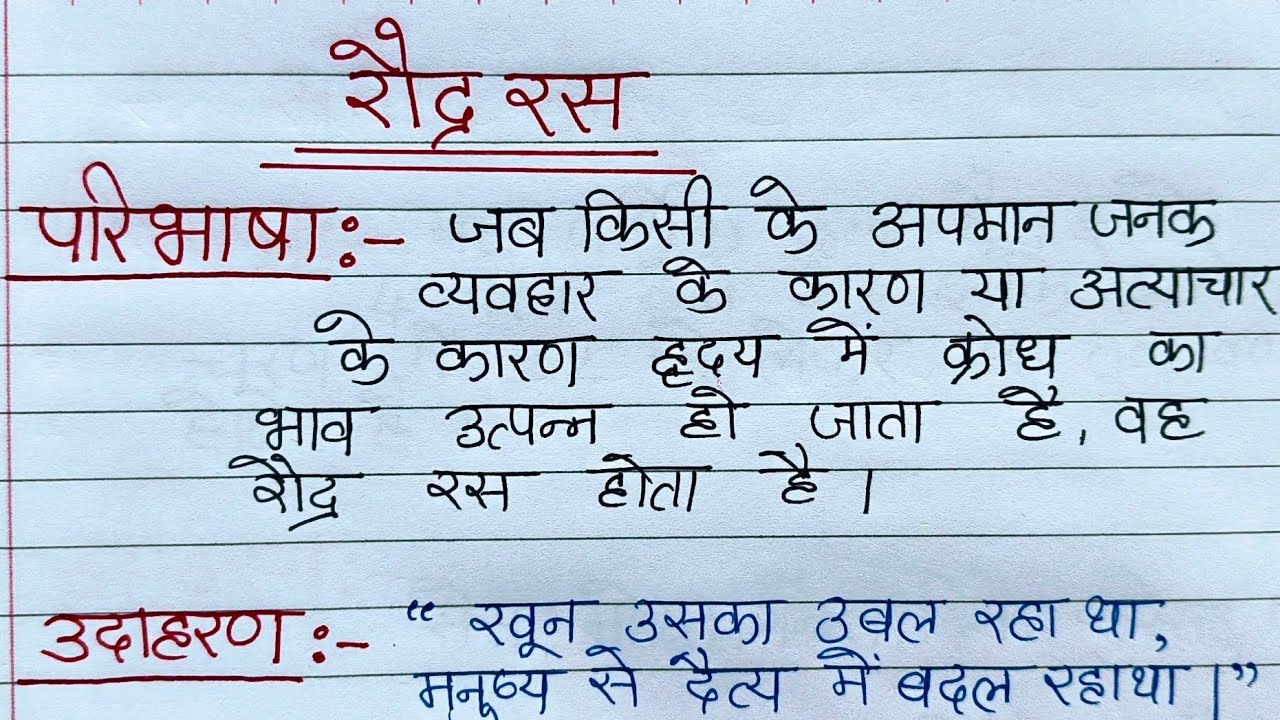 रौद्र रस
परिभाषा :- जब किसी के अपमान जनक
व्यवहार के कारण या अत्याचार
के कारण हृदय में क्रोध का
भाव उत्पन्न हो जाता है, वह
रौद्र रस होता है ।
उदाहरण :- “ खून उसका उबल रहा था,
मनुष्य से दैत्य में बदल रहा था ।”